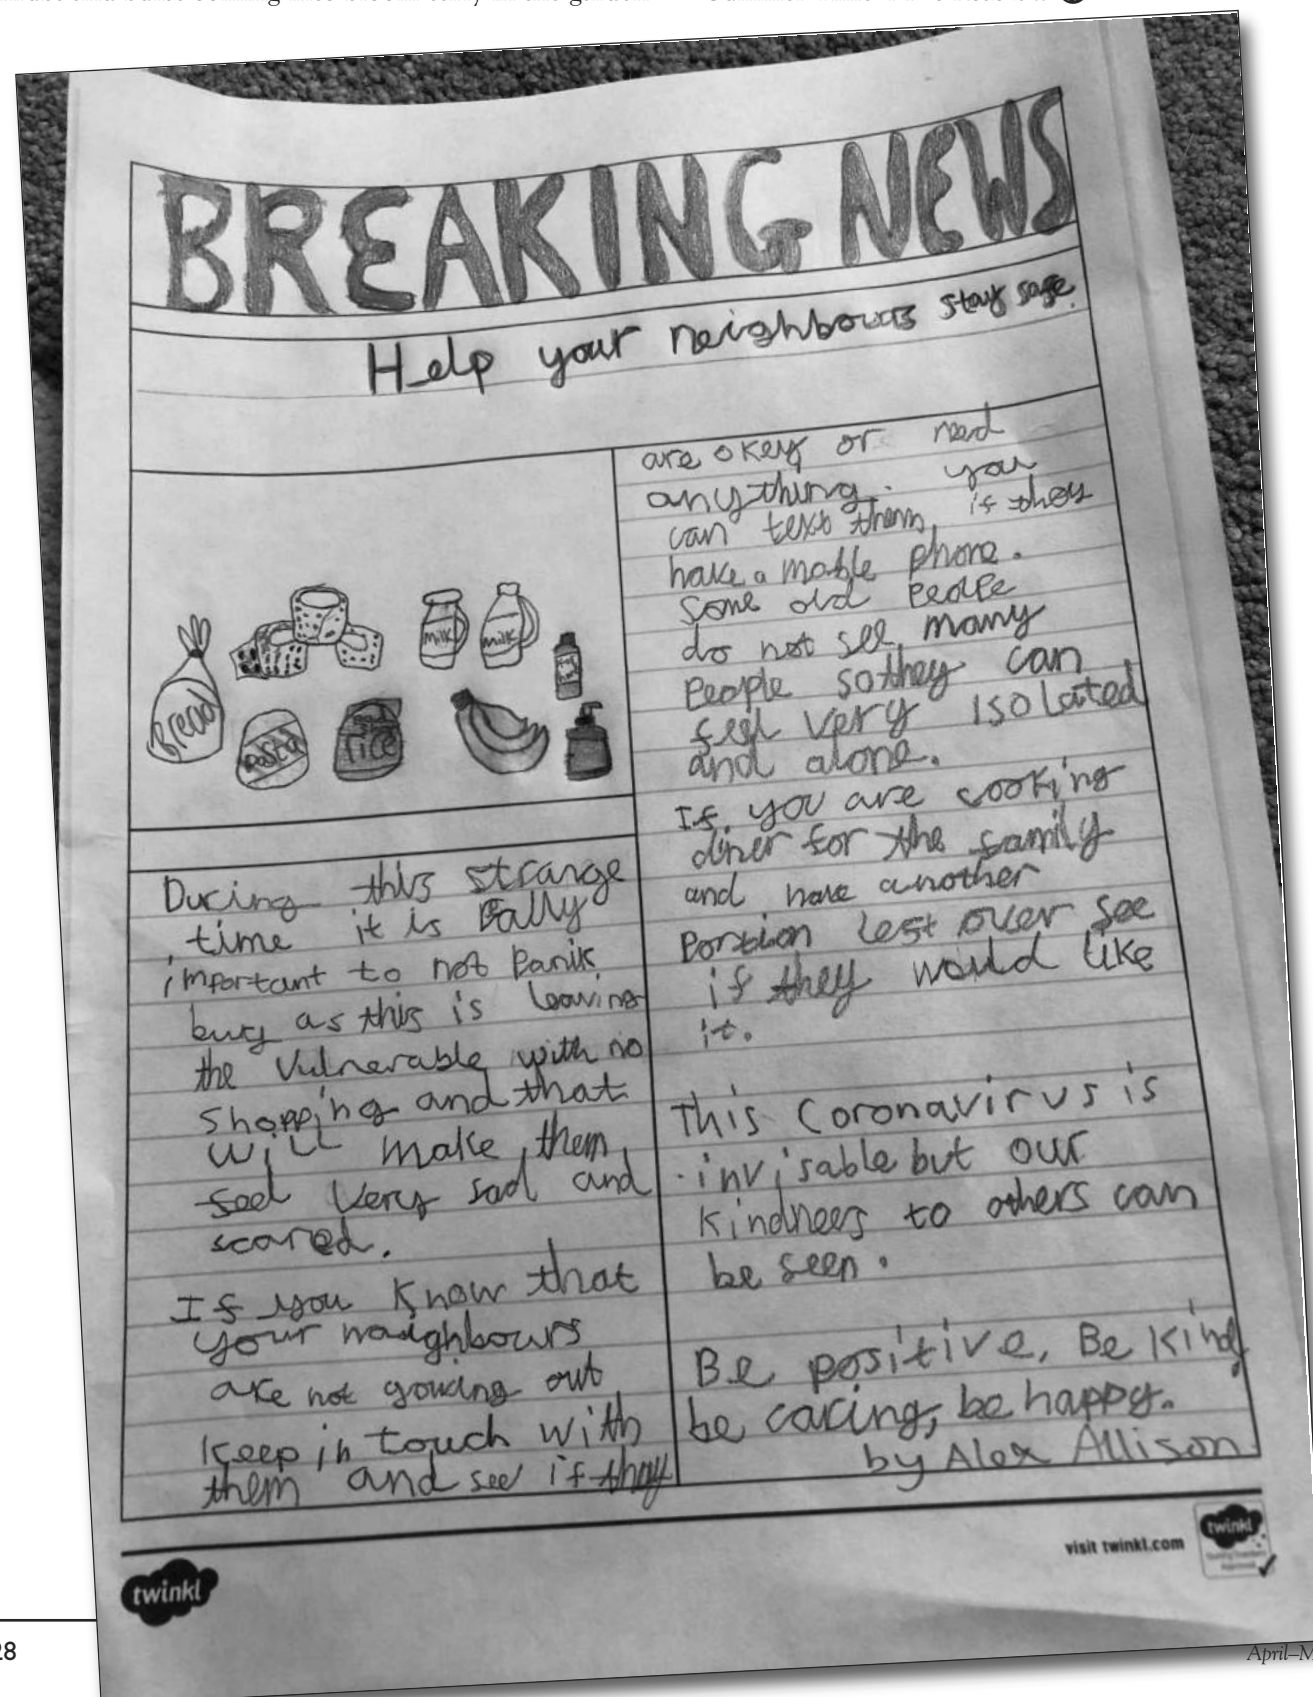 BREAKING NEWS
Help your neighbours stay safe.
Bread
Pasta
rice
milk
milk
During this strange
time it is
important to not Panik
buy as this is leaving
the Vulnerable with no
Shopping and that
will make them
feel very sad and
scared.
If you know that
your naighbours
are not gowing out
keep in touch with
them and see if thay
are okey or need
anything. you
can text them, if they
have a moble phone.
Some old people
do not see many
People so they can
feel very isolated
and alone.
If you are cooking
diner for the family
and have another
Portion left over see
if they would like
it.
This Coronavirus is
invisable but our
kindness to others can
be seen.
Be positive, Be kind,
be caring, be happy.
by Alex Allison
twinkl
visit twinkl.com
twinkl
28
April–M